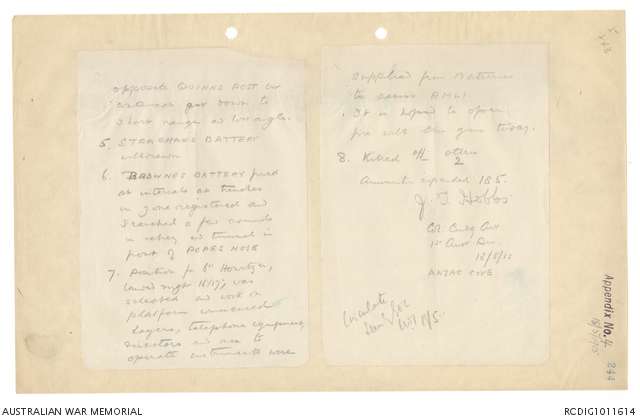 opposite QUINNS POST
short range
5. STRACHANS BATTERY
withdrawn
6. BROWNES BATTERY fired
at intervals at trenches
in zone registered and
searched a few rounds
in valley
front of POPES NOSE
7. Position for 6" Howitzer,
landed night 16/17, was
selected and work on
platform commenced
layers, telephone equipment,
directors and men to
operate instruments were
supplied from Batteries
to assist RMLI
It is hoped to open
fire with this gun today.
8. Killed off others
2
Ammunition expended 185.
J. T. Hobbs
Col Cmdg Art
1st Aust Div.
18/5/15
ANZAC COVE
Circulate
18/5.
Appendix No. 4
18/5/15
244
AUSTRALIAN WAR MEMORIAL
RCDIG1011614